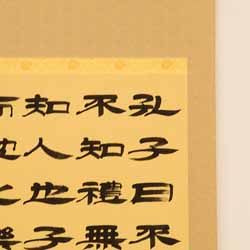 孔子曰不
不知禮無
知人也子